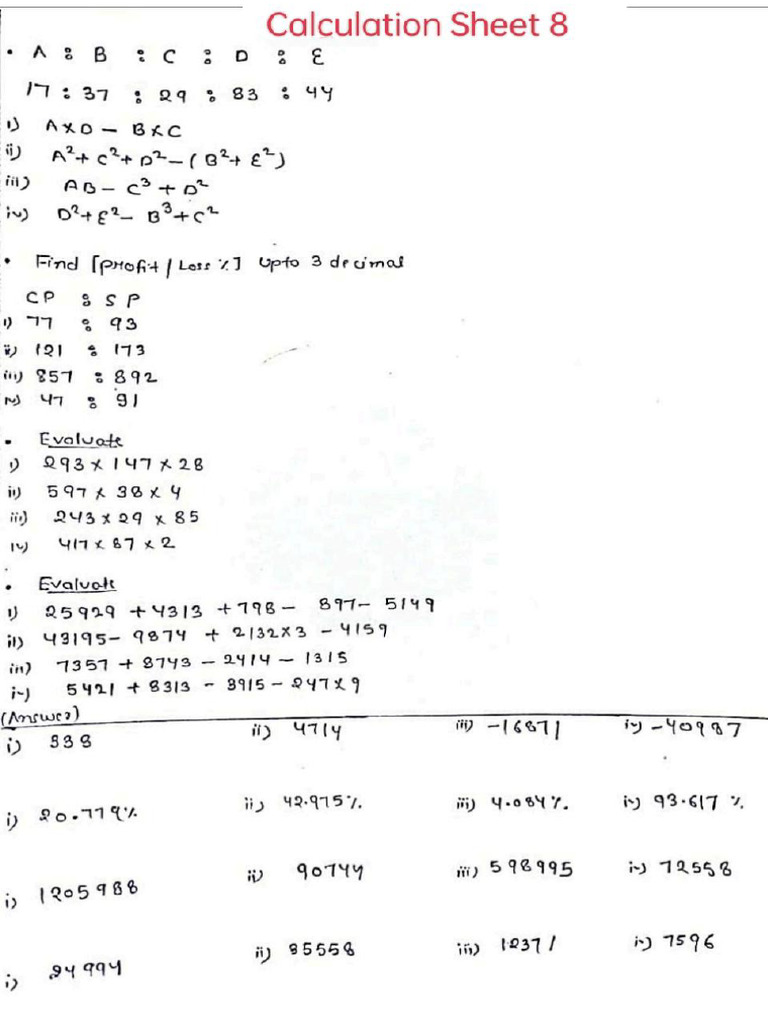 Calculation Sheet 8
• A : B : C : D : E
17 : 37 : 29 : 83 : 44
i) A×D - B×C
ii) A²+ C²+ D² - (B²+ E²)
iii) AB - C³ + D²
iv) D²+ E² - B³ + C²
• Find [Profit / Loss %] upto 3 decimal
CP : SP
i) 77 : 93
ii) 121 : 173
iii) 857 : 892
iv) 47 : 91
• Evaluate
i) 293 × 147 × 28
ii) 597 × 38 × 4
iii) 243 × 29 × 85
iv) 417 × 87 × 2
• Evaluate
i) 25929 + 4313 + 798 - 897 - 5149
ii) 43195 - 9874 + 2132×3 - 4159
iii) 7357 + 8743 - 2414 - 1315
iv) 5421 + 8313 - 3915 - 247×9
(Answer)
i) 338 ii) 4714 iii) -16871 iv) -40987
i) 20.779% ii) 42.975% iii) 4.084% iv) 93.617 %
i) 1205988 ii) 90744 iii) 598995 iv) 72558
i) 24994 ii) 35558 iii) 12371 iv) 7596